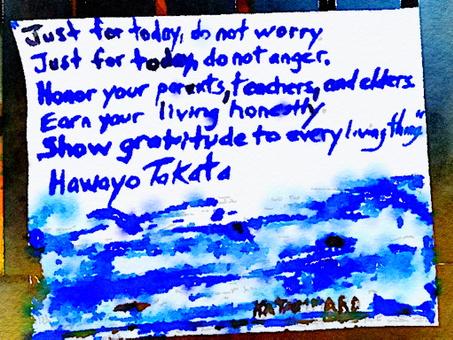 "Just for today, do not worry
Just for today, do not anger.
Honor your parents, teachers, and elders.
Earn your living honestly
Show gratitude to every living thing"
Hawayo Takata